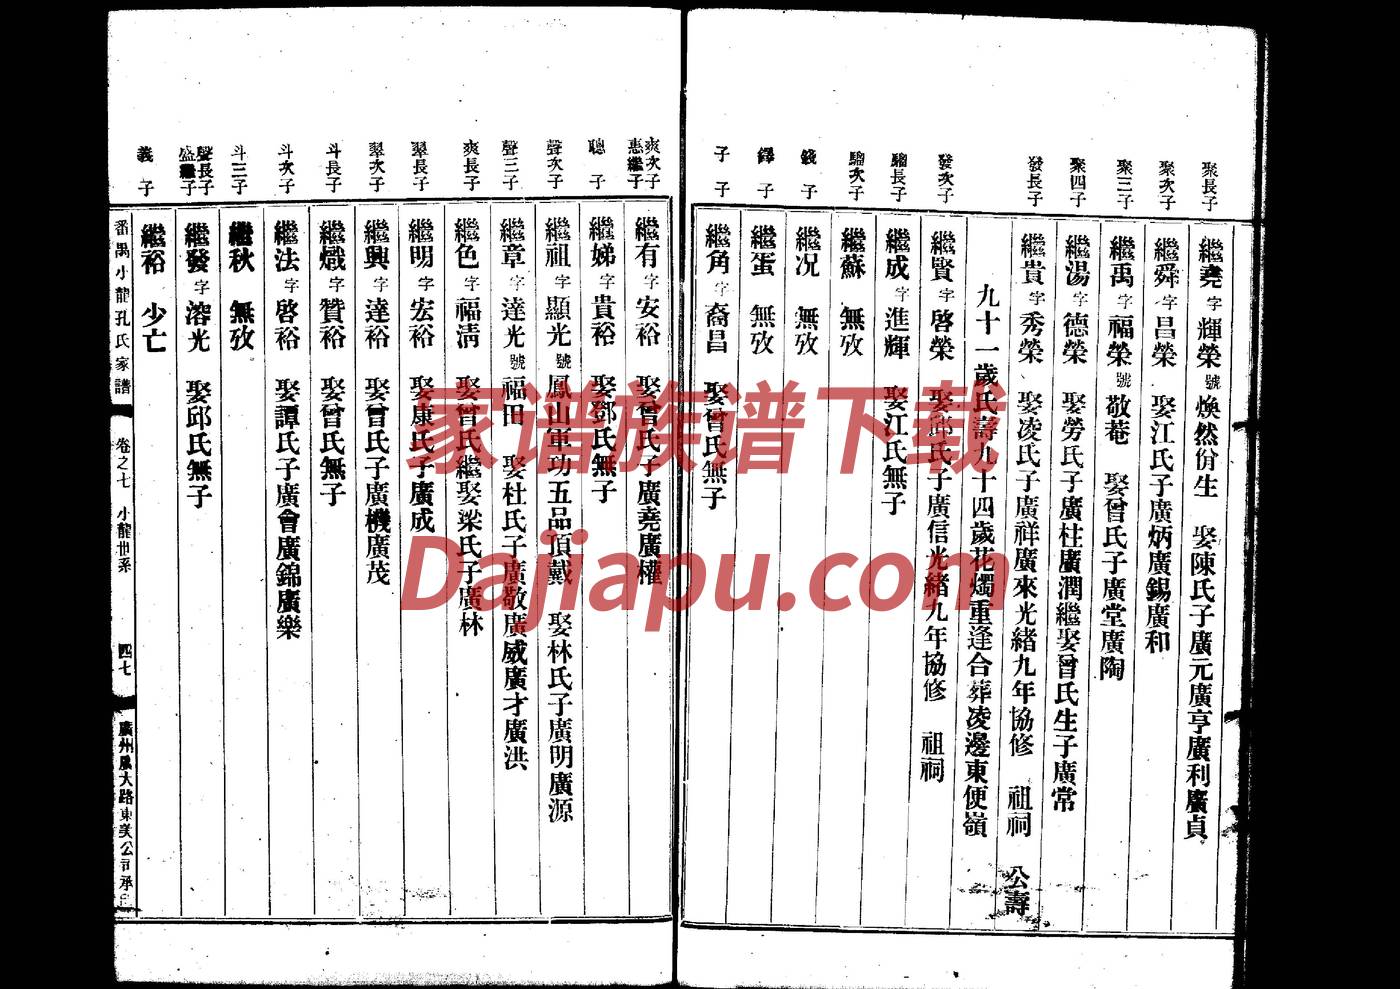 聚長子
繼堯字輝榮號煥然份生 娶陳氏子廣元廣亨廣利廣貞
聚次子
繼舜字昌榮 娶江氏子廣炳廣錫廣和
聚三子
繼禹字福榮號敬菴 娶曾氏子廣堂廣陶
聚四子
繼湯字德榮 娶勞氏子廣柱廣潤繼娶曾氏生子廣常
發長子
繼貴字秀榮 娶凌氏子廣祥廣來光緒九年協修 祖祠 公壽
九十一歲氏壽九十四歲花燭重逢合葬凌邊東便嶺
發次子
繼賢字啓榮 娶邱氏子廣信光緒九年協修 祖祠
騮長子
繼成字進輝 娶江氏無子
騮次子
繼蘇 無攷
錢 子
繼況 無攷
鐸 子
繼蛋 無攷
子 子
繼角字裔昌 娶曾氏無子
爽次子
惠繼子
繼有字安裕 娶曾氏子廣堯廣權
聰 子
繼娣字貴裕 娶鄧氏無子
聲次子
繼祖字顯光號鳳山軍功五品頂戴 娶林氏子廣明廣源
聲三子
繼章字達光號福田 娶杜氏子廣敬廣威廣才廣洪
爽長子
繼色字福清 娶曾氏繼娶梁氏子廣林
翠長子
繼明字宏裕 娶康氏子廣成
翠次子
繼興字達裕 娶曾氏子廣機廣茂
斗長子
繼熾字贊裕 娶曾氏無子
斗次子
繼法字啓裕 娶譚氏子廣會廣錦廣樂
斗三子
繼秋 無攷
聲長子
盛繼子
繼發字溶光 娶邱氏無子
義 子
繼裕 少亡
番禺小龍孔氏家譜 卷之七 小龍世系 四七 廣州鳳大路東美公司承
家谱族谱下载
Dajiapu.com